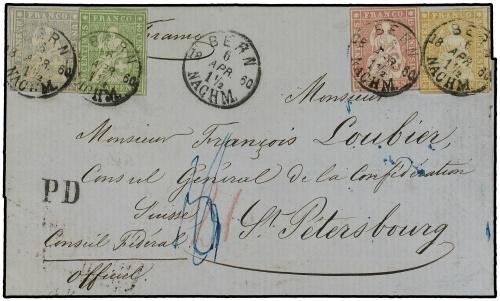 FRANCO FRANCO FRANCO FRANCO
BERN
6
APR.
1½
18 60
NACHM.
BERN
6
18 APR. 60
1½
NACHM.
BERN
6
18 APR. 60
1½
NACHM.
BERN
6
18 APR. 60
1½
NACHM.
Franco
Monsieur
Monsieur François Loubier,
Consul Général de la Confédération
Suisse
St. Pétersbourg
PD
Conseil Fédéral
Officiel.